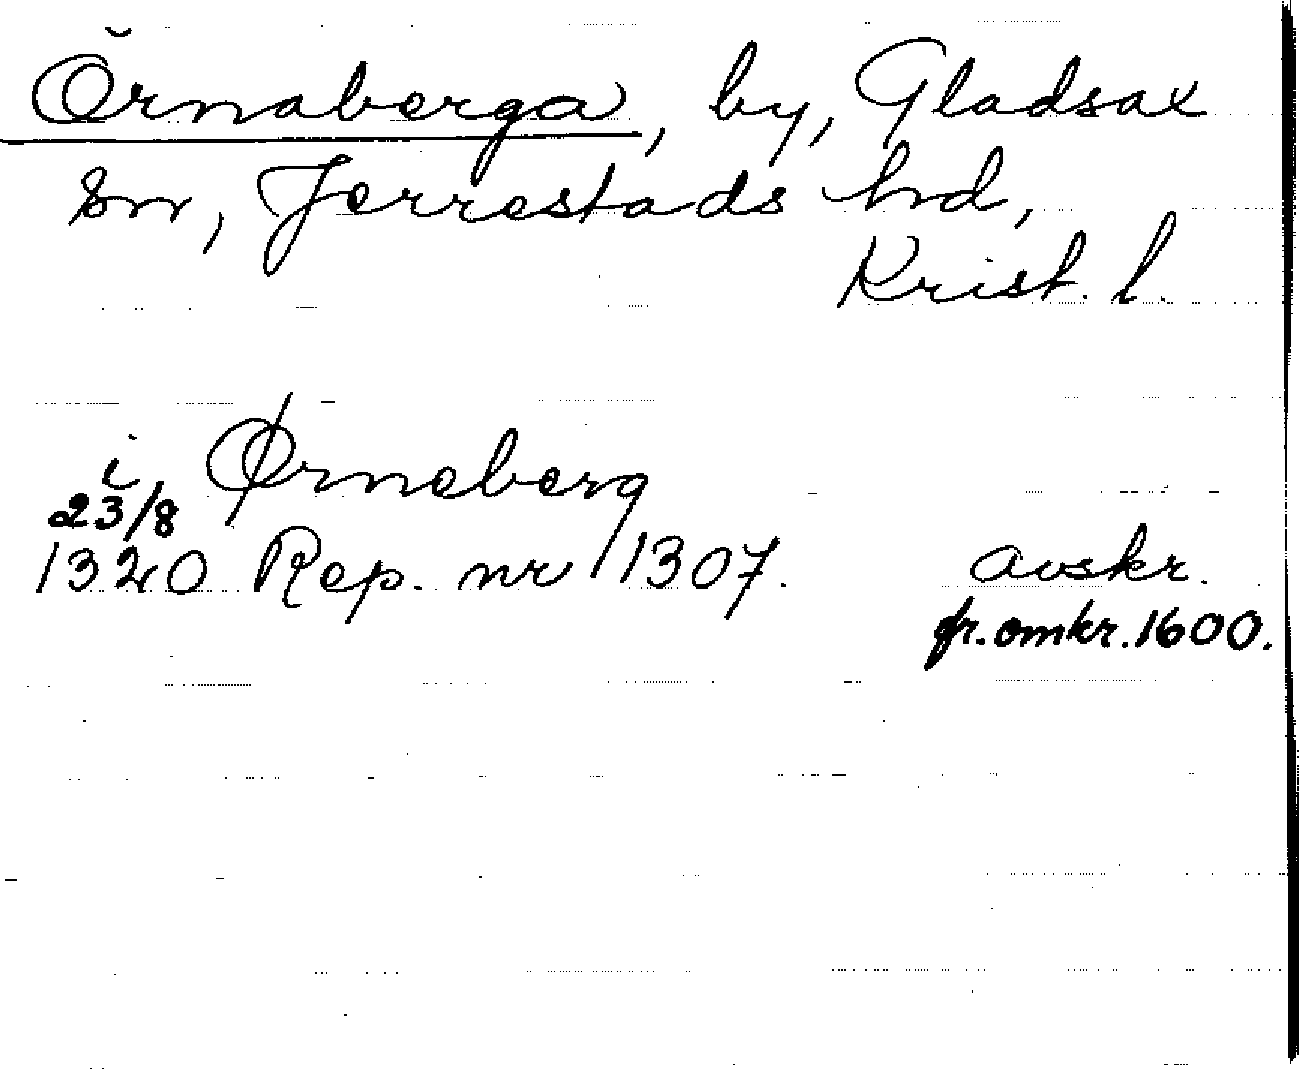 Örnaberga, by, Gladsax
sn, Jerrestads hd,
Krist. l.
i Ørneberg
23/8
1320 Rep. nr 1307. avskr.
fr. omkr. 1600.